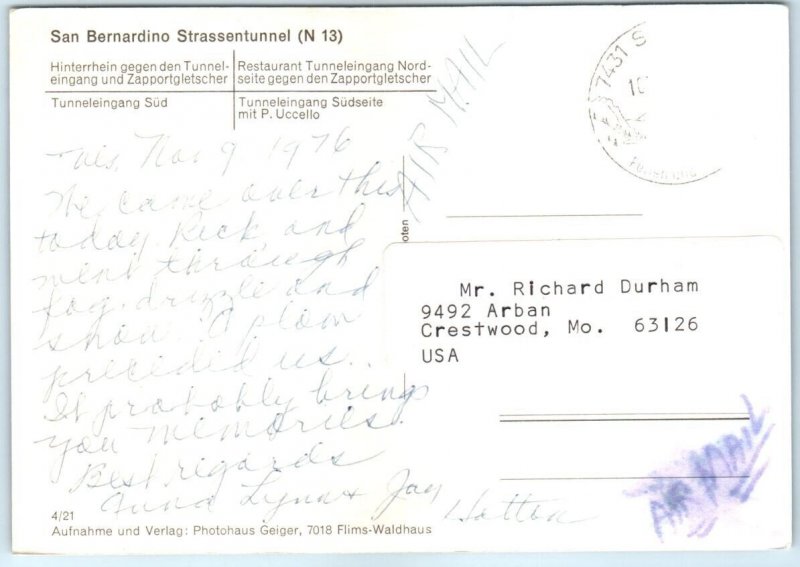 San Bernardino Strassentunnel (N 13)
Hinterrhein gegen den Tunnel-
eingang und Zapportgletscher
Restaurant Tunneleingang Nord-
seite gegen den Zapportgletscher
Tunneleingang Süd
Tunneleingang Südseite
mit P. Uccello
AIR MAIL
7431 S
10
Tues, Nov 9 1976
We came over this
today. Rick, and
went through
fog, drizzle and
snow. A plow
preceded us.
It probably brings
you memories.
Best regards
Anna Lynn & Jay Hatton
oten
Mr. Richard Durham
9492 Arban
Crestwood, Mo. 63126
USA
AIR MAIL
4/21
Aufnahme und Verlag: Photohaus Geiger, 7018 Flims-Waldhaus